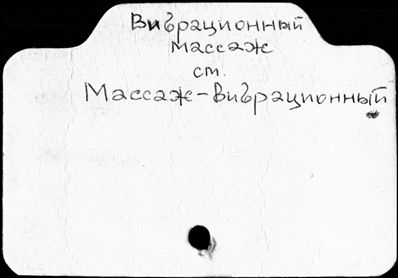 Вибрационный
массаж
см.
Массаж-вибрационный